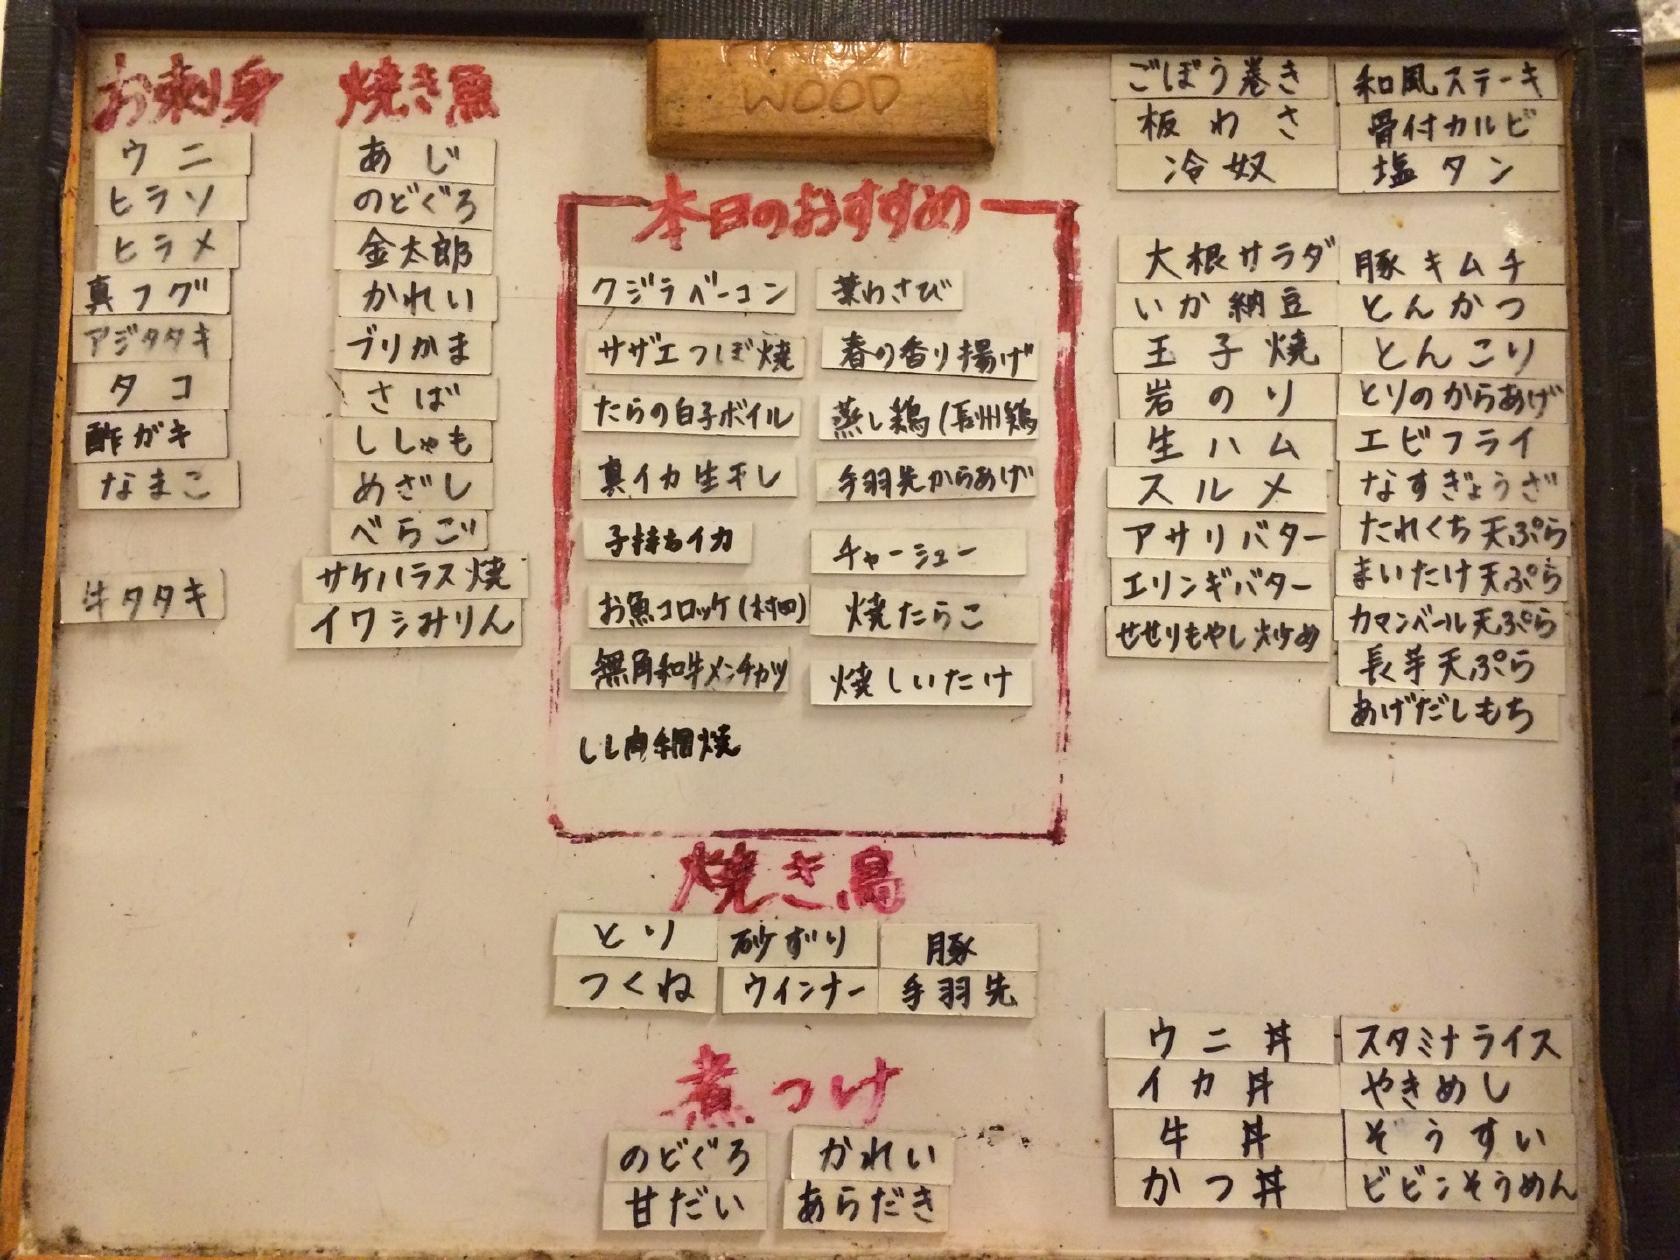 WOOD
お刺身
ウニ
ヒラソ
ヒラメ
真フグ
アジタタキ
タコ
酢ガキ
なまこ
牛タタキ
焼き魚
あじ
のどぐろ
金太郎
かれい
ブリかま
さば
ししゃも
めざし
べらご
サケハラス焼
イワシみりん
本日のおすすめ
クジラベーコン
サザエつぼ焼
たらの白子ボイル
真イカ生干し
子持ちイカ
お魚コロッケ(村田)
無角和牛メンチカツ
しし肉網焼
葉わさび
春の香り揚げ
蒸し鶏(長州鶏
手羽先からあげ
チャーシュー
焼たらこ
焼しいたけ
焼き鳥
とり
砂ずり
豚
つくね
ウインナー
手羽先
煮つけ
のどぐろ
かれい
甘だい
あらだき
ごぼう巻き
板わさ
冷奴
大根サラダ
いか納豆
玉子焼
岩のり
生ハム
スルメ
アサリバター
エリンギバター
せせりもやし炒め
和風ステーキ
骨付カルビ
塩タン
豚キムチ
とんかつ
とんこり
とりのからあげ
エビフライ
なすぎょうざ
たれくち天ぷら
まいたけ天ぷら
カマンベール天ぷら
長芋天ぷら
あげだしもち
ウニ丼
イカ丼
牛丼
かつ丼
スタミナライス
やきめし
ぞうすい
ビビンそうめん